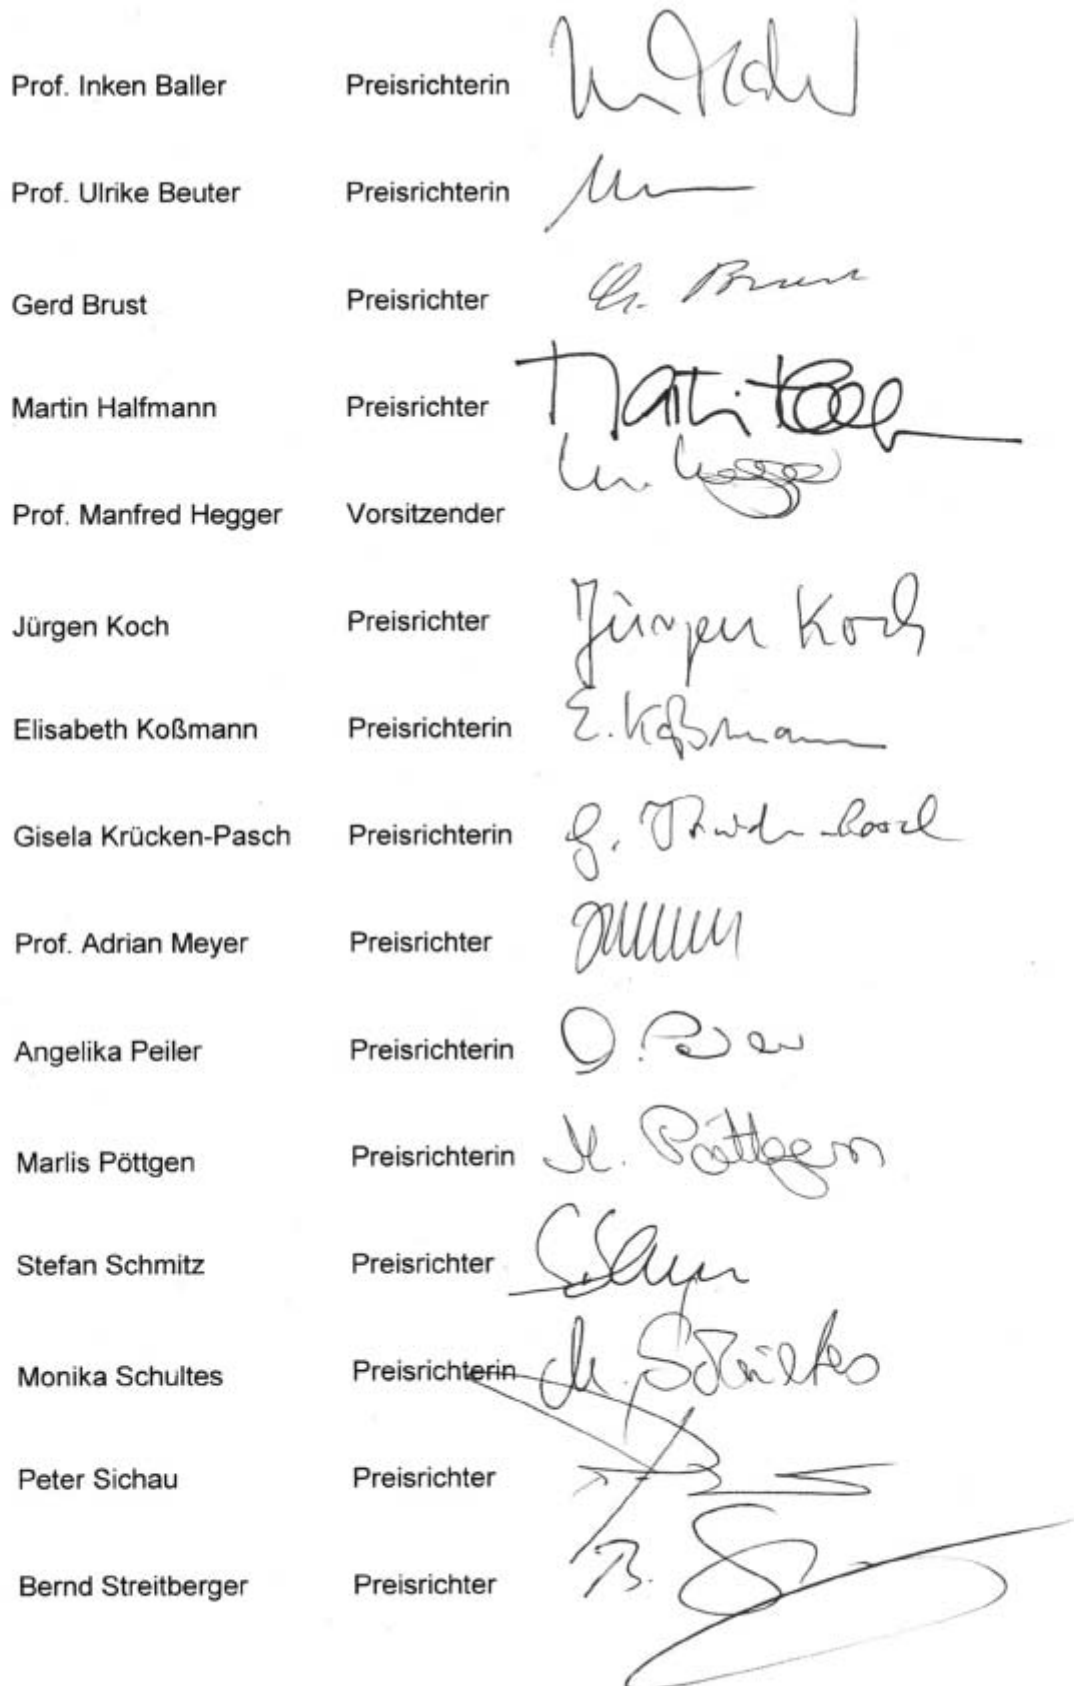 Prof. Inken Baller Preisrichterin
Prof. Ulrike Beuter Preisrichterin
Gerd Brust Preisrichter G. Brust
Martin Halfmann Preisrichter Martin
Prof. Manfred Hegger Vorsitzender M. Hegger
Jürgen Koch Preisrichter Jürgen Koch
Elisabeth Koßmann Preisrichterin E. Koßmann
Gisela Krücken-Pasch Preisrichterin G.
Prof. Adrian Meyer Preisrichter
Angelika Peiler Preisrichterin
Marlis Pöttgen Preisrichterin M. Pöttgen
Stefan Schmitz Preisrichter
Monika Schultes Preisrichterin M. Schultes
Peter Sichau Preisrichter
Bernd Streitberger Preisrichter B.